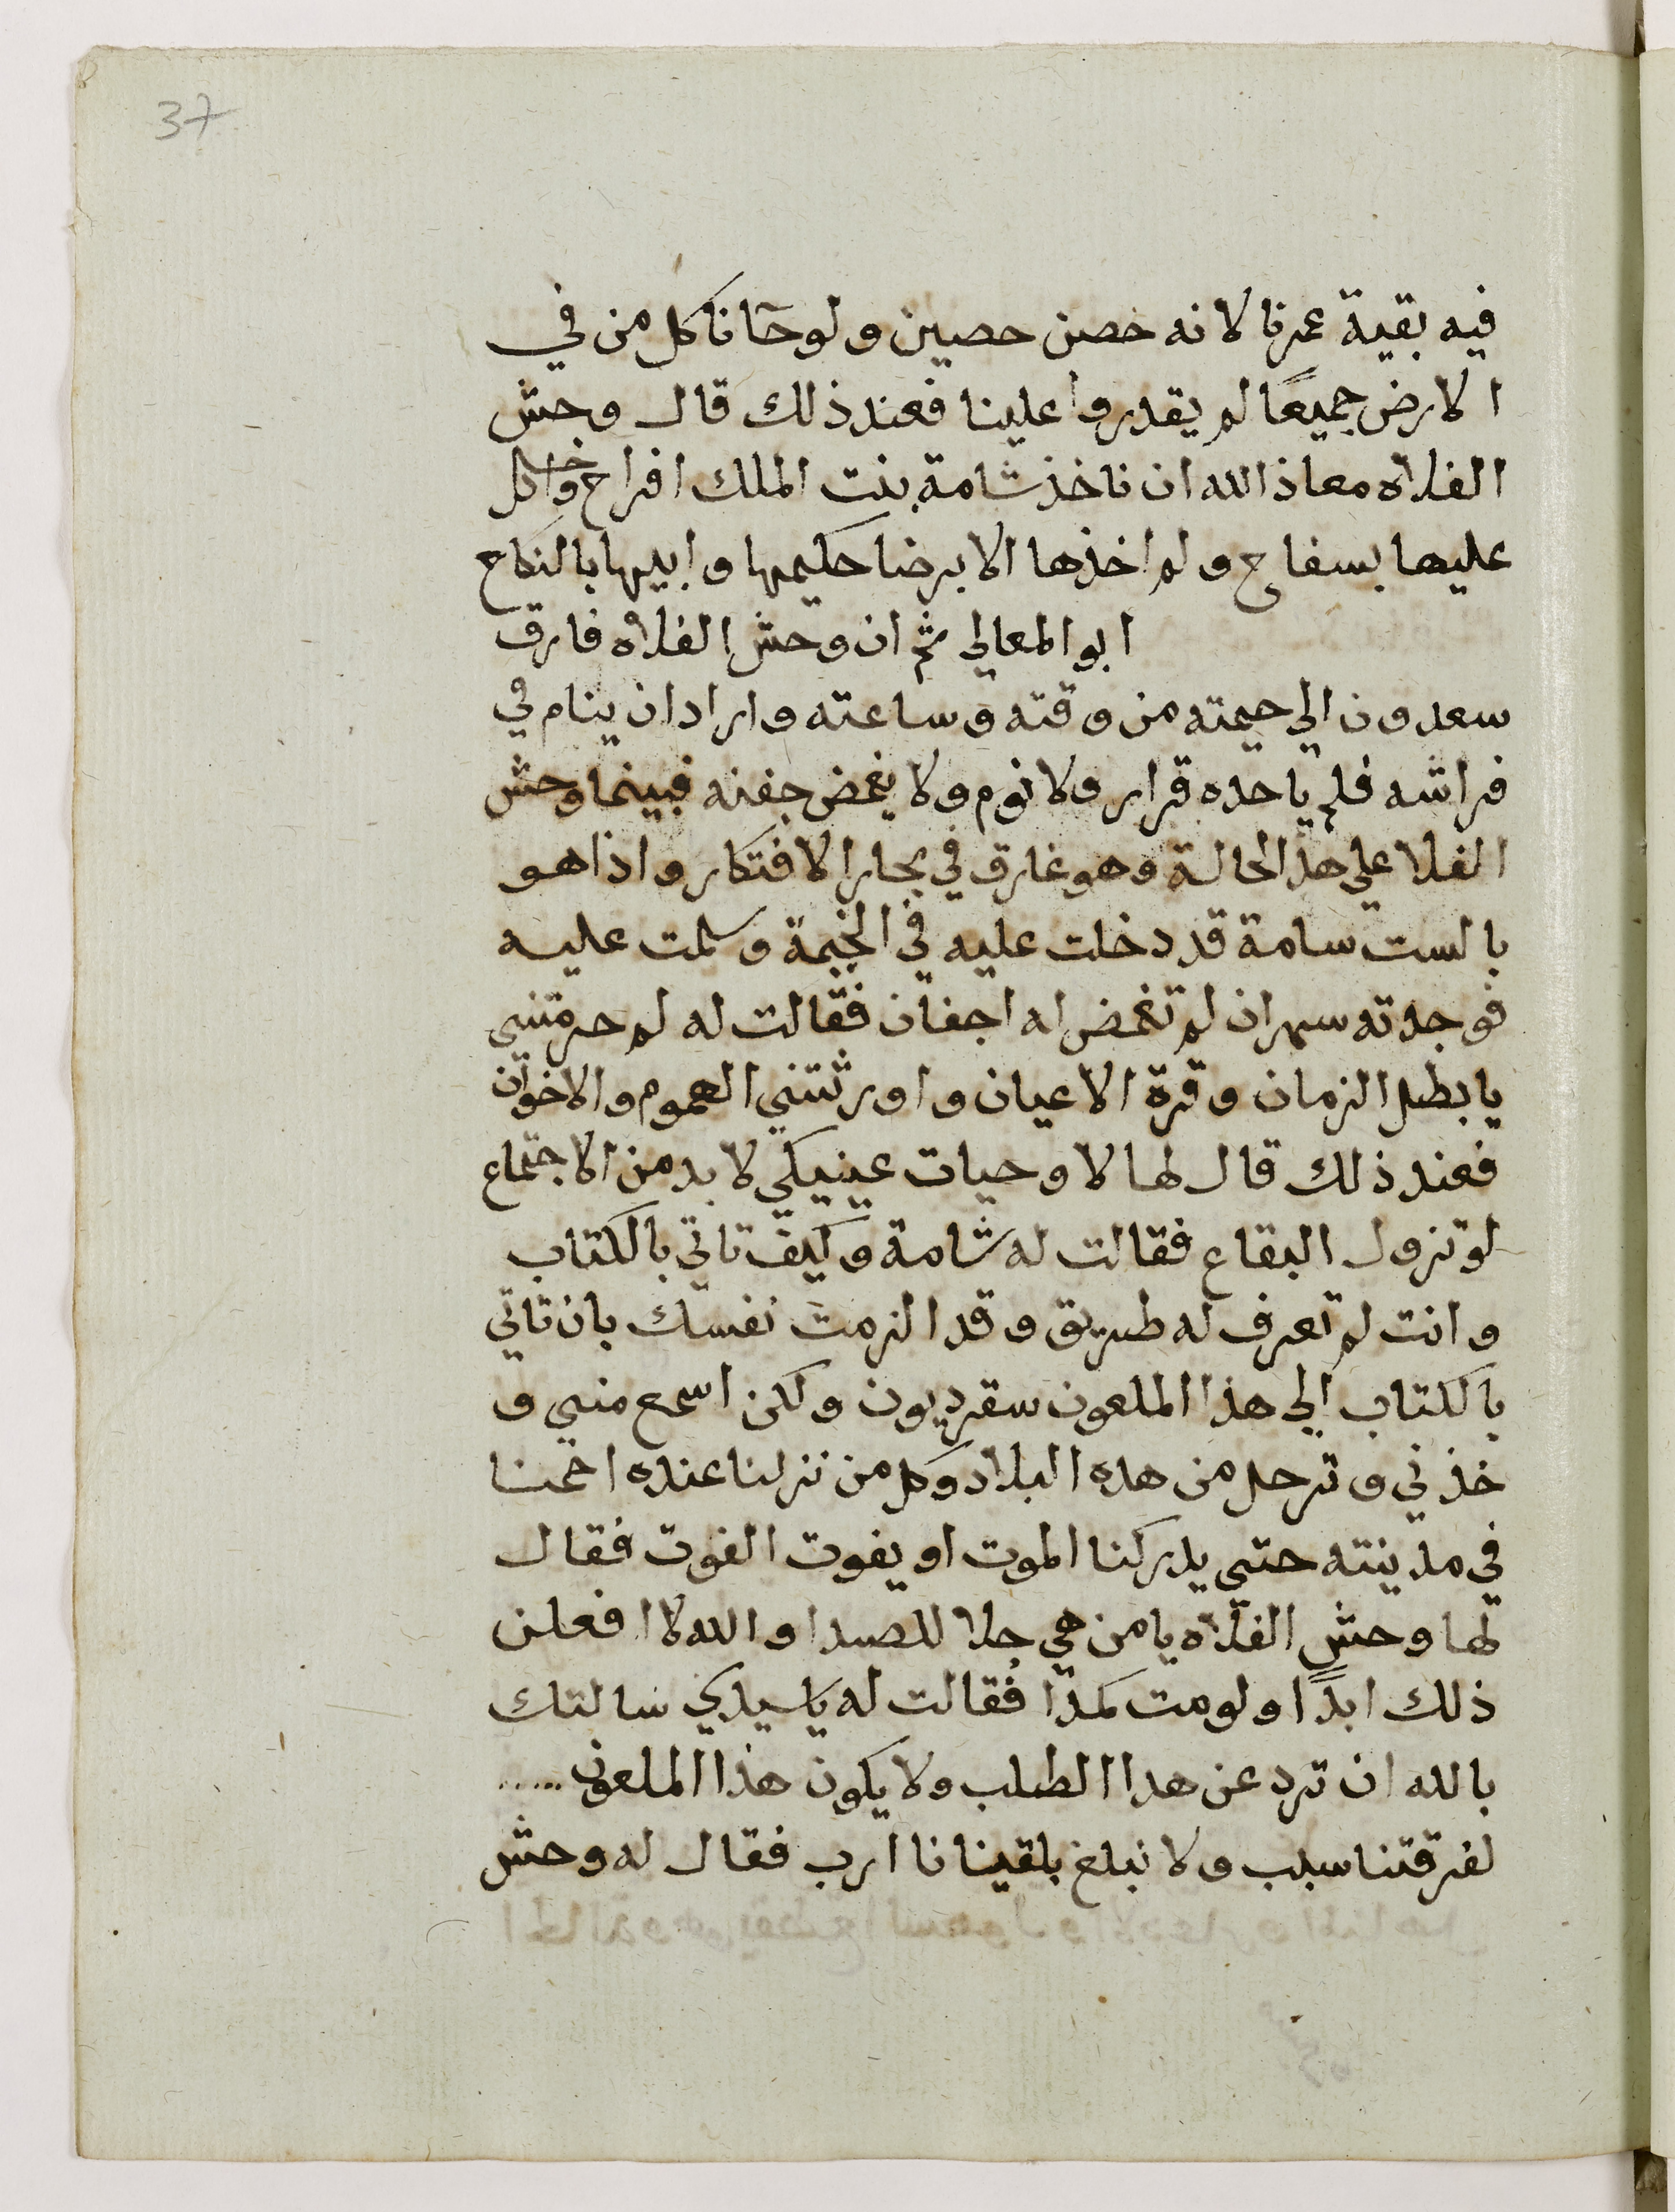 37
فيه بقية عمرنا لانه حصن حصين ولو جآنا كل من في
الارض جميعًا لم يقدروا علينا فعند ذلك قال وحش
الفلاه معاذ الله ان ناخذ شامة بنت الملك افراح
عليها بسفاح ولم اخذها الا برضا حكيمها وابيها بالنكاح
ابو المعالي ثم ان وحش الفلاه فارق
سعدون الي خيمته من وقته وساعته واراد ان ينام في
فراشه فلم ياحده قرار ولا نوم ولا يغمض جفنه فبينما وحش
الفلا علي هذا الحالة وهو غارق في بحار الافتكار واذا هو
بالست سامة قد دخلت عليه في الخيمة وسلمت عليه
فوجدته سهران لم تغمض له اجفان فقالت له لم حرمتني
يا بطل الزمان وقرة الاعيان واورثتني الهموم والاخوان
فعند ذلك قال لها لا وحيات عينيكي لا بد من الاجتماع
لو تزول البقاع فقالت له شامة وكيف تاتي بالكتاب
وانت لم تعرف له طريق وقد الزمت نفسك بان تاتي
بالكتاب الي هذا الملعون سقرديون ولكن اسمع مني و
خذني وترحل من هده البلاد وكل من نزلنا عنده احمنا
في مدينته حتي يدركنا الموت او يفوت الفوت فقال
لها وحش الفلاه يا من هي جلا للصدا والله لا افعلن
ذلك ابدًا ولو مت كمدًا فقالت له يا سيدي سالتك
بالله ان ترد عن هدا الطلب ولا يكون هذا الملعون .....
لفرقتنا سبب ولا نبلغ بلقينانا ارب فقال له وحش